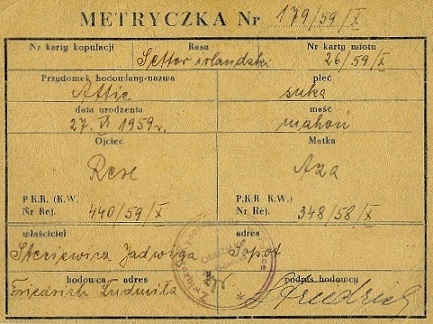 METRYCZKA Nr 179/59/X
Nr karty kopulacji Rasa Nr karty miotu
Setter irlandzki 26/59/X
Przydomek hodowlany-nazwa płeć
Attic suka
data urodzenia maść
27. VI 1959 r. mahoń
Ojciec Matka
Rex Aza
P.K.R. (K.W.) P.K.R (K.W.)
Nr Rej. 440/59/X Nr Rej. 348/58/X
właściciel adres
Jadwiga Sopot
hodowca adres podpis hodowcy
Friedrich Ludmiła Friedrich